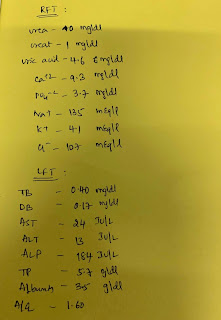 RFT :
urea - 40 mg/dl
creat - 1 mg/dl
uric acid - 4.6 mg/dl
Ca+2 - 9.3 mg/dl
PO4 - 3.7 mg/dl
Na+ - 135 mEq/l
K+ - 4.1 mEq/l
Cl- - 107 mEq/l
LFT :
TB - 0.40 mg/dl
DB - 0.17 mg/dl
AST - 24 IU/L
ALT - 13 IU/L
ALP - 184 IU/L
TP - 5.7 g/dl
Albumin - 3.5 g/dl
A/G - 1.60